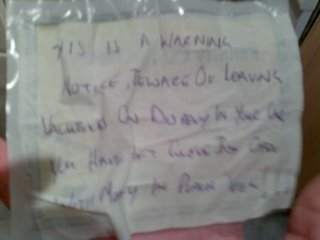 THIS IS A WARNING
NOTICE, BEWARE OF LEAVING
VALUABLES ON DISPLAY IN YOUR CAR
YOU HAVE LEFT GLOVE BOX OPEN
WITH MONEY IN PLAIN VIEW!